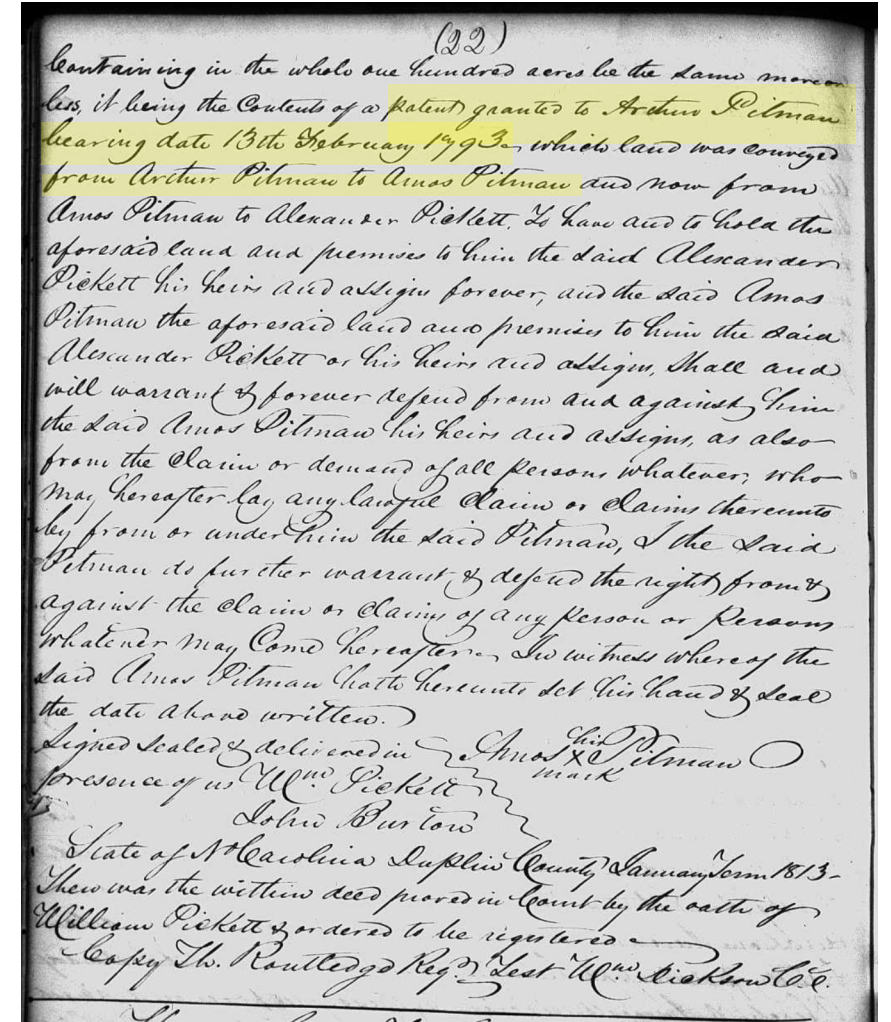 (22)
Containing in the whole one hundred acres be the same more or
less, it being the Contents of a patent granted to Arthur Pitman
bearing date 13th February 1793 which land was conveyed
from Arthur Pitman to Amos Pitman and now from
Amos Pitman to Alexander Pickett. To have and to hold the
aforesaid land and premises to him the said Alexander
Pickett his heirs and assigns forever, and the said Amos
Pitman the aforesaid land and premises to him the said
Alexander Pickett or his heirs and assigns, Shall and
will warrant & forever defend from and against him
the said Amos Pitman his heirs and assigns, as also
from the Claim or demand of all persons whatever, who
may hereafter lay any lawful Claim or Claims thereunto
by from or under him the said Pitman, I the said
Pitman do further warrant & defend the right from &
against the Claim or Claims of any person or Persons
whatever may Come hereafter. In witness whereof the
said Amos Pitman hath hereunto set his hand & seal
the date above written.
Signed Sealed & delivered in Amos his X mark Pitman
presence of us Wm. Pickett
John Burton
State of No Carolina Duplin County January Term 1813-
Then was the within deed proved in Court by the oath of
William Pickett & ordered to be registered
Copy Th. Routledge Regr. Test Wm. Dickson C.C.